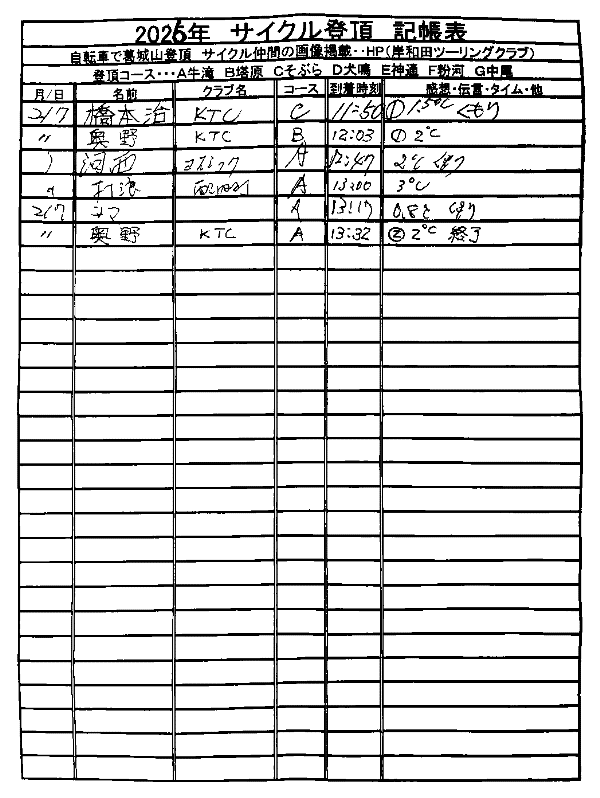 2026年 サイクル登頂 記帳表
自転車で葛城山登頂 サイクル仲間の画像掲載‥HP(岸和田ツーリングクラブ)
登頂コース･･･A牛滝 B塔原 Cそぶら D犬鳴 E神通 F粉河 G中尾
月/日 名前 クラブ名 コース 到着時刻 感想・伝言・タイム・他
2/7 橋本治 KTC C 11:50 ① 1.5℃ くもり
〃 奥野 KTC B 12:03 ① 2℃
河西 A 12:47 2℃ くもり
〃 打浪 A 13:00 3℃
2/7 シマ A 13:17 0.8℃ くもり
〃 奥野 KTC A 13:32 ② 2℃ 終了